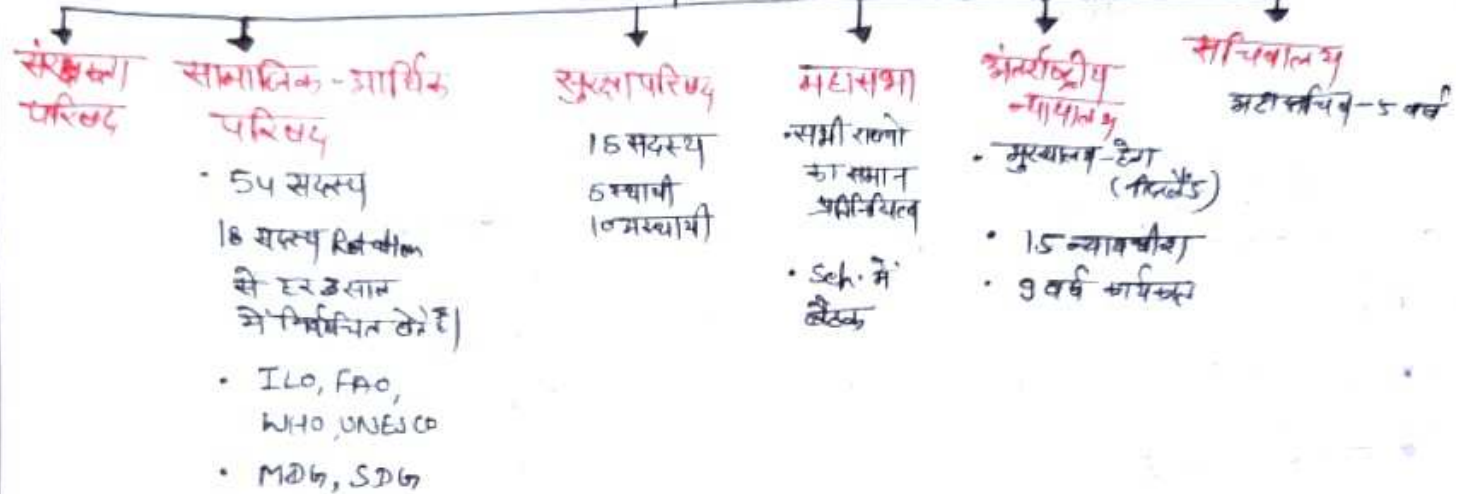 संरक्षता
परिषद
सामाजिक-आर्थिक
परिषद
• 54 सदस्य
18 सदस्य Rotation
से हर 3 साल
में निर्वाचित होते हैं|
• ILO, FAO,
WHO, UNESCO
• MDG, SDG
सुरक्षा परिषद
15 सदस्य
5 स्थायी
10 अस्थायी
महासभा
• सभी राज्यो
का समान
प्रतिनिधित्व
• Seh. में
बैठक
अंतर्राष्ट्रीय
न्यायालय
• मुख्यालय-हेग
(नीदरलैंड)
• 15 न्यायधीश
• 9 वर्ष कार्यकाल
सचिवालय
महासचिव-5 वर्ष